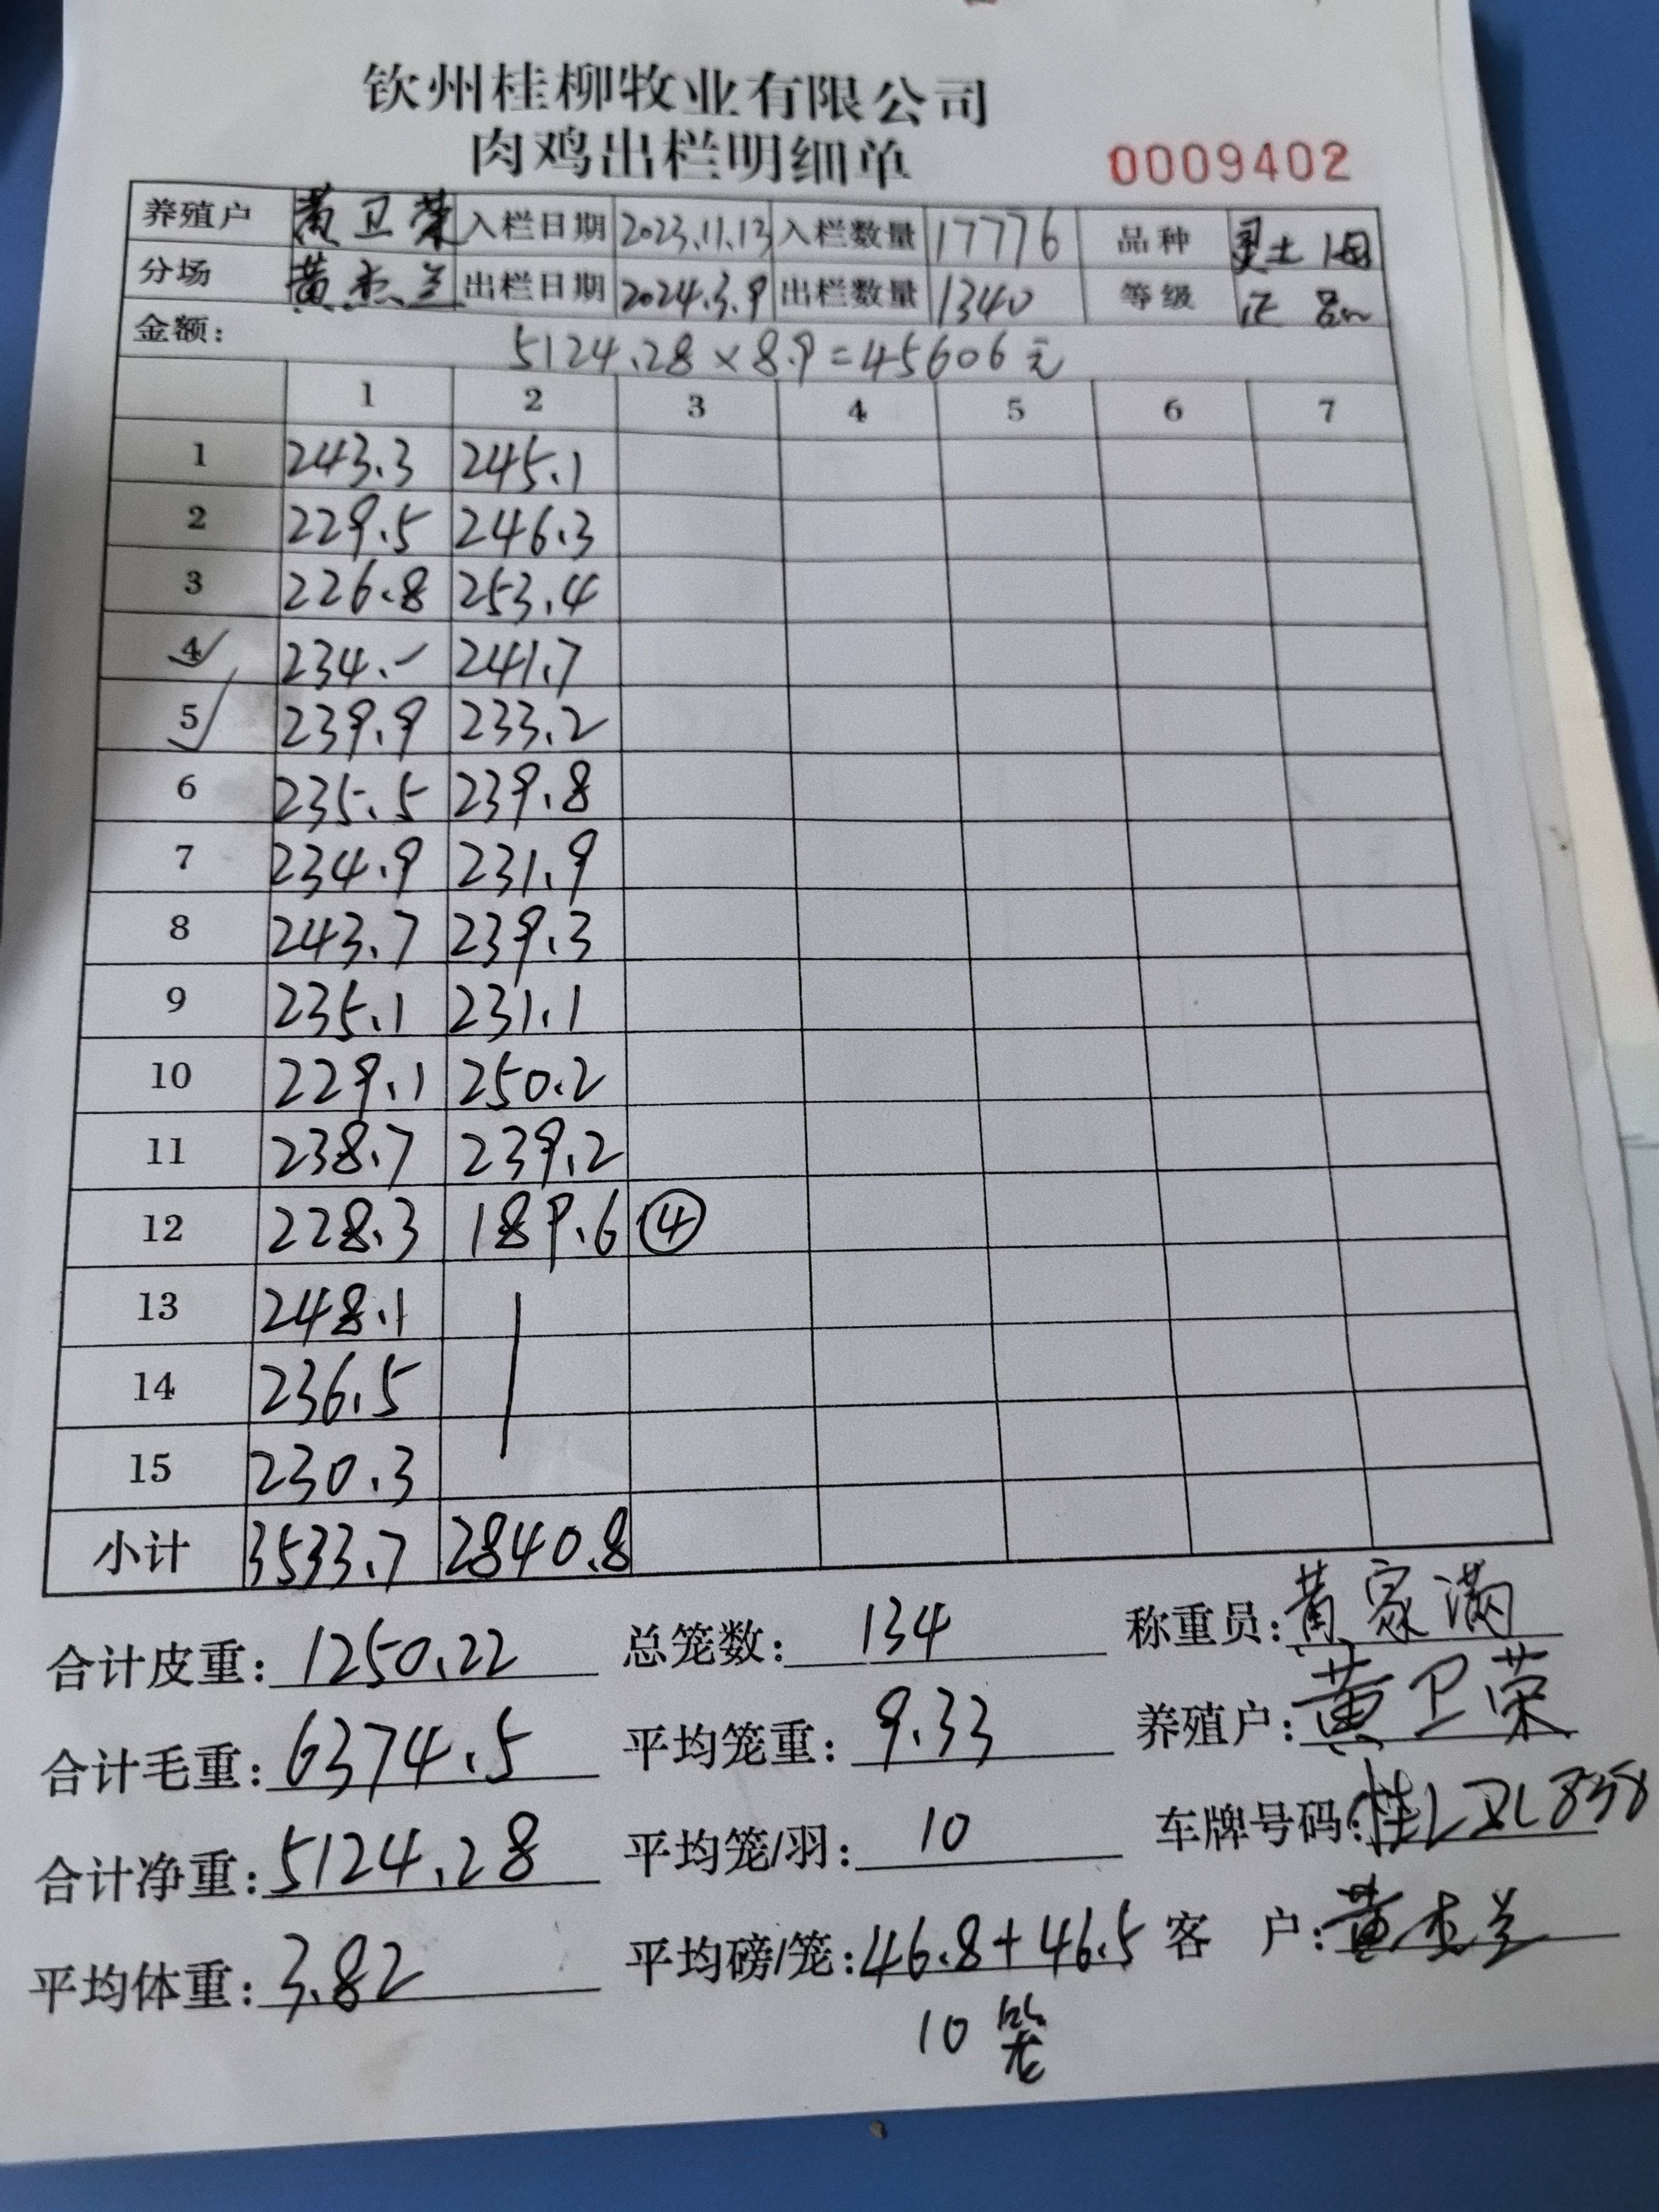 钦州桂柳牧业有限公司
肉鸡出栏明细单 0009402
养殖户 黄卫荣 入栏日期 2023.11.13 入栏数量 17776 品种 土1母
分场 黄杰兰 出栏日期 2024.3.9 出栏数量 1340 等级 正品
金额: 5124.28×8.9=45606元
1 2 3 4 5 6 7
1 243.3 245.1
2 229.5 246.3
3 226.8 253.4
4 234.- 241.7
5 239.9 233.2
6 235.5 239.8
7 234.9 231.9
8 243.7 239.3
9 235.1 231.1
10 229.1 250.2
11 238.7 239.2
12 228.3 189.6 ④
13 248.1
14 236.5
15 230.3
小计 3533.7 2840.8
合计皮重: 1250.22 总笼数: 134 称重员: 黄家满
合计毛重: 6374.5 平均笼重: 9.33 养殖户: 黄卫荣
合计净重: 5124.28 平均笼/羽: 10 车牌号码:
平均体重: 3.82 平均磅/笼: 46.8+46.5 客户: 黄杰兰
10笼